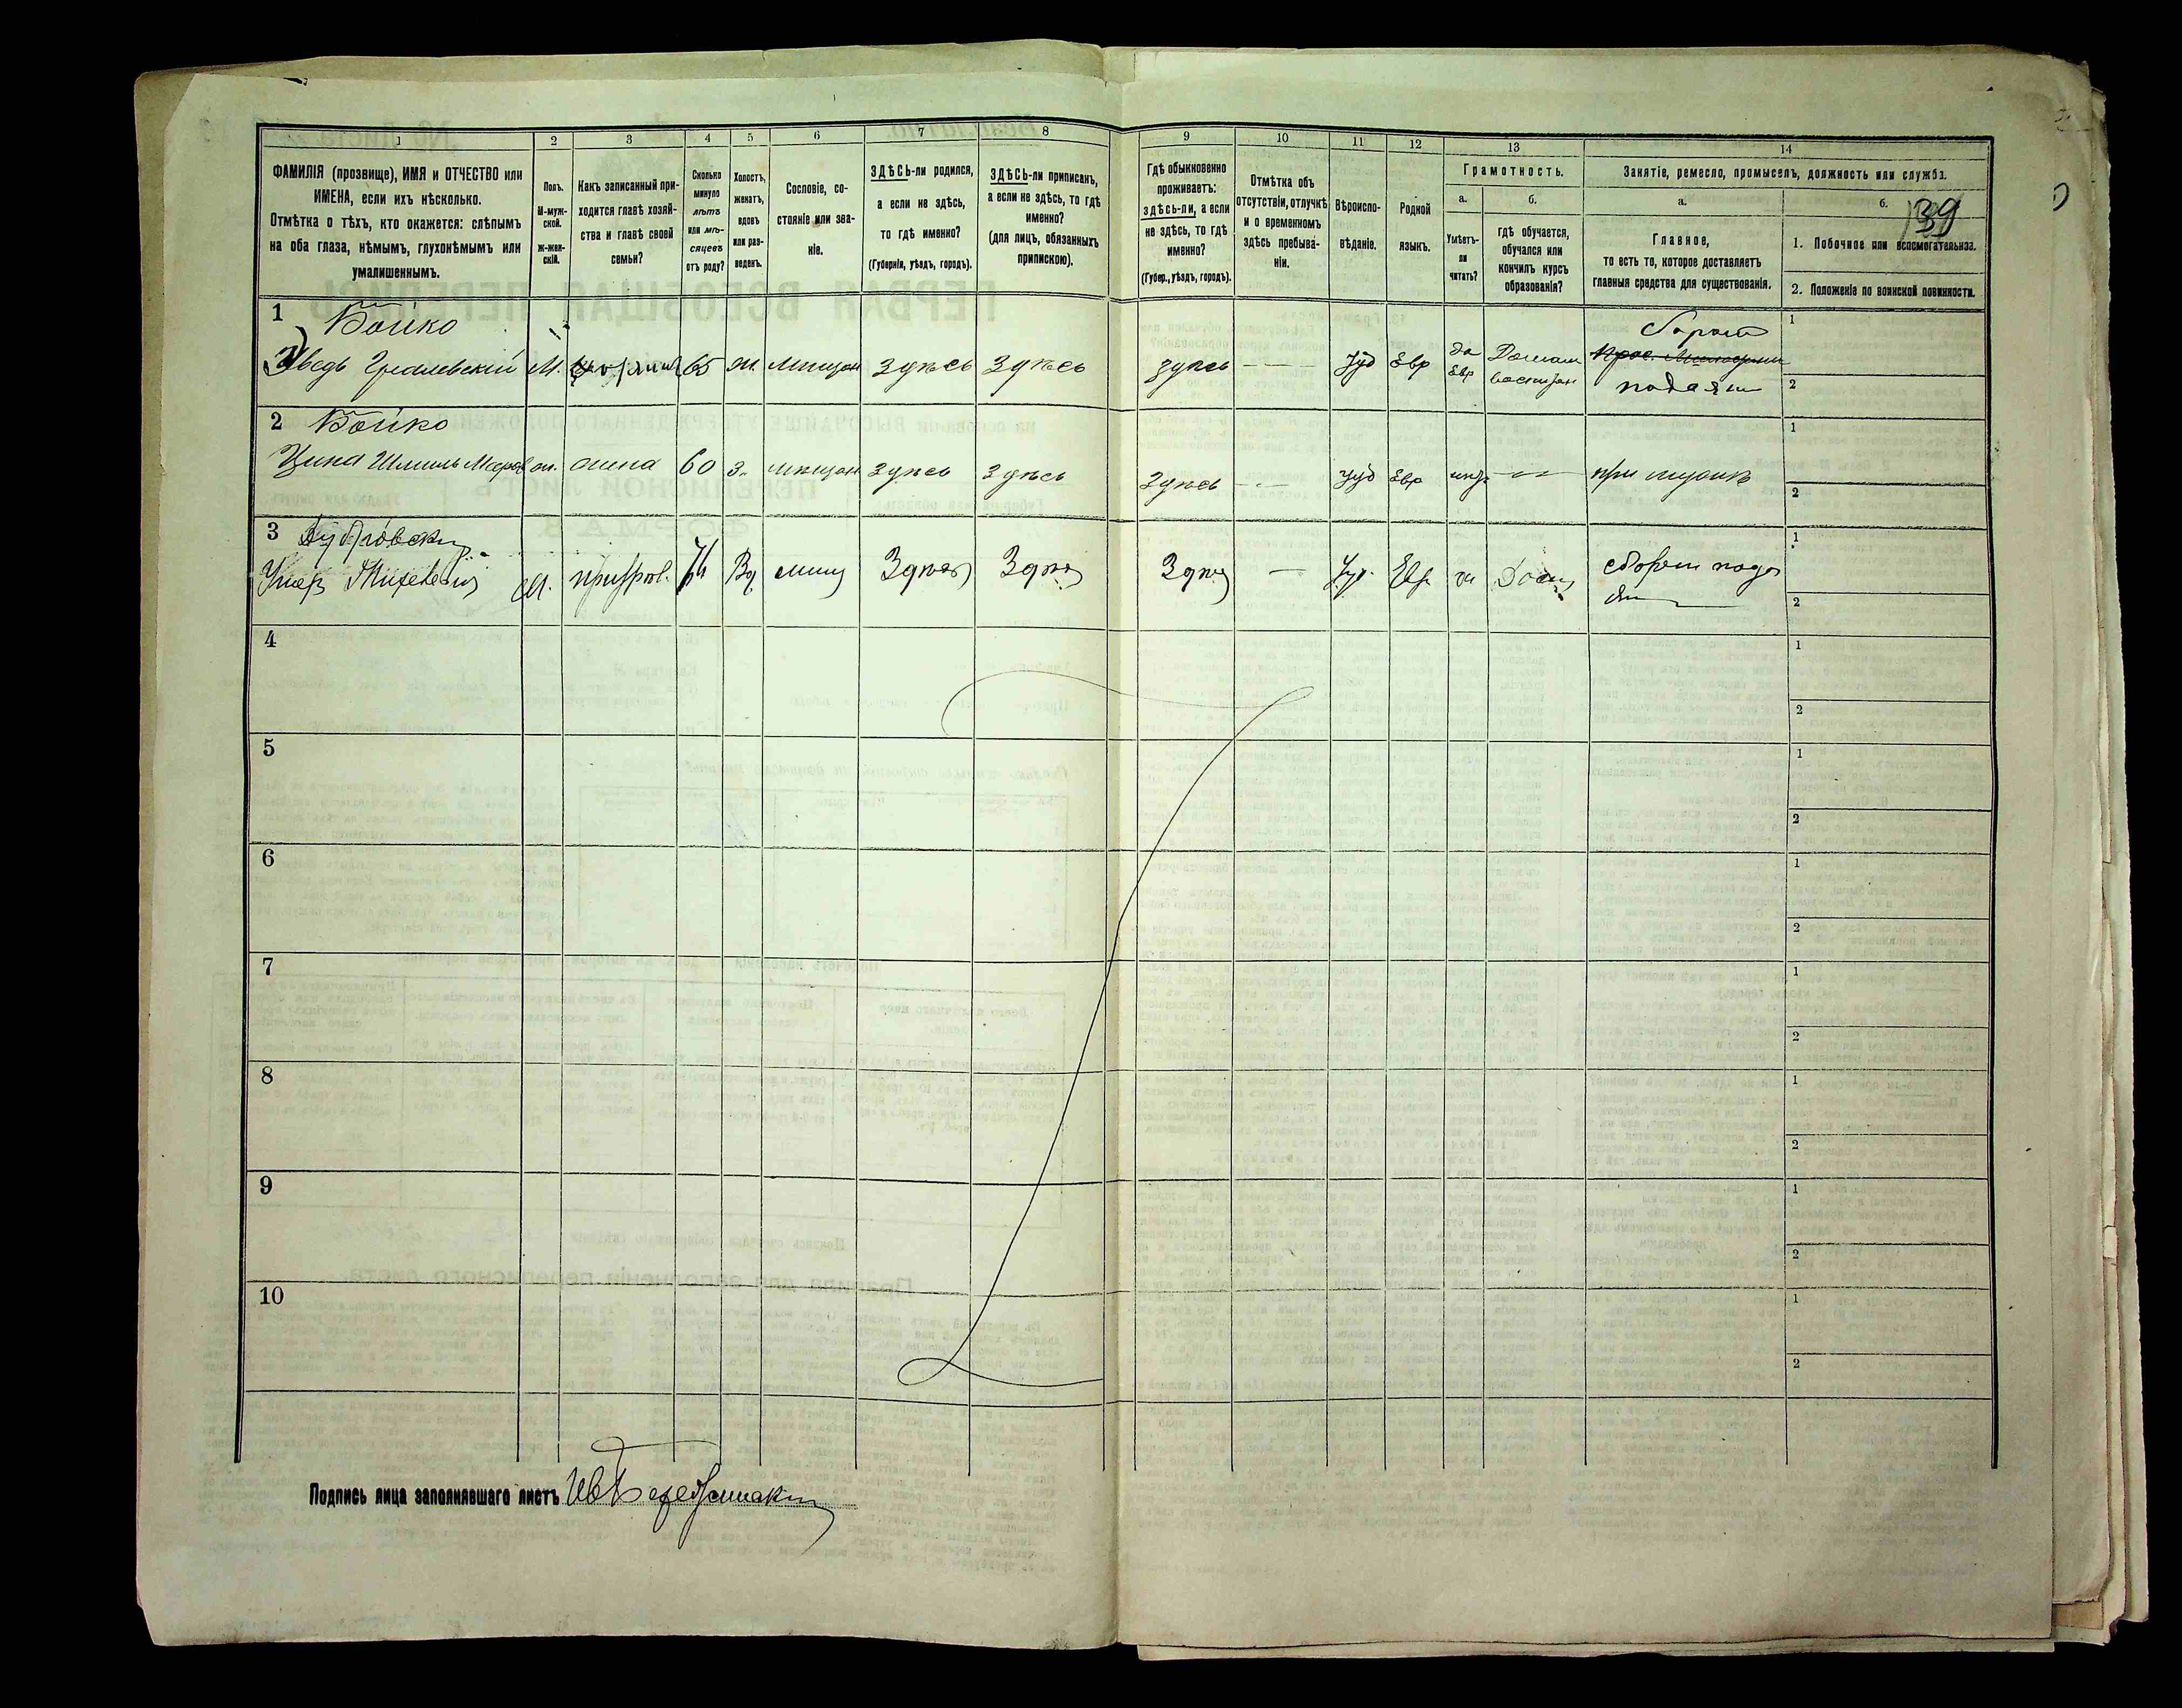 39
1
2
3
4
5
6
7
8
9
10
11
12
13
14
ФАМИЛІЯ (прозвище), ИМЯ и ОТЧЕСТВО или
ИМЕНА, если ихъ нѣсколько.
Отмѣтка о тѣхъ, кто окажется: слѣпымъ
на оба глаза, нѣмымъ, глухонѣмымъ или
умалишеннымъ.
Полъ.
М-муж-
ской.
Ж-жен-
скій.
Какъ записанный при-
ходится главѣ хозяй-
ства и главѣ своей
семьи?
Сколько
минуло
лѣтъ
или мѣ-
сяцевъ
отъ роду?
Холостъ,
женатъ,
вдовъ
или раз-
веденъ.
Сословіе, со-
стояніе или зва-
ніе.
ЗДѢСЬ-ли родился,
а если не здѣсь,
то гдѣ именно?
(Губернія, уѣздъ, городъ).
ЗДѢСЬ-ли приписанъ,
а если не здѣсь, то гдѣ
именно?
(для лицъ, обязанныхъ
припискою).
Гдѣ обыкновенно
проживаетъ:
здѣсь-ли, а если
не здѣсь, то гдѣ
именно?
(Губер., уѣздъ, городъ).
Отмѣтка объ
отсутствіи, отлучкѣ
и о временномъ
здѣсь пребыва-
ніи.
Вѣроиспо-
вѣданіе.
Родной
языкъ.
Грамотность.
а.
Умѣетъ-
ли
читать?
б.
гдѣ обучается,
обучался или
кончилъ курсъ
образованія?
Занятіе, ремесло, промыселъ, должность или служба.
а.
Главное,
то есть то, которое доставляетъ
главныя средства для существованія.
б.
1. Побочное или вспомогательное.
2. Положеніе по воинской повинности.
1 Бойко
М. 65 ж. мѣщан здѣсь здѣсь здѣсь Іуд Евр да Евр Домаш
подаян
1
2
2 Бойко
Цина жена 60 з. мѣщан здѣсь здѣсь здѣсь Іуд Евр при мужѣ
1
2
3
М. 74 Вд. мѣщ Здѣсь Здѣсь Здѣсь Іуд. Евр
1
2
4
1
2
5
1
2
6
1
2
7
1
2
8
1
2
9
1
2
10
1
2
Подпись лица заполнявшаго листъ